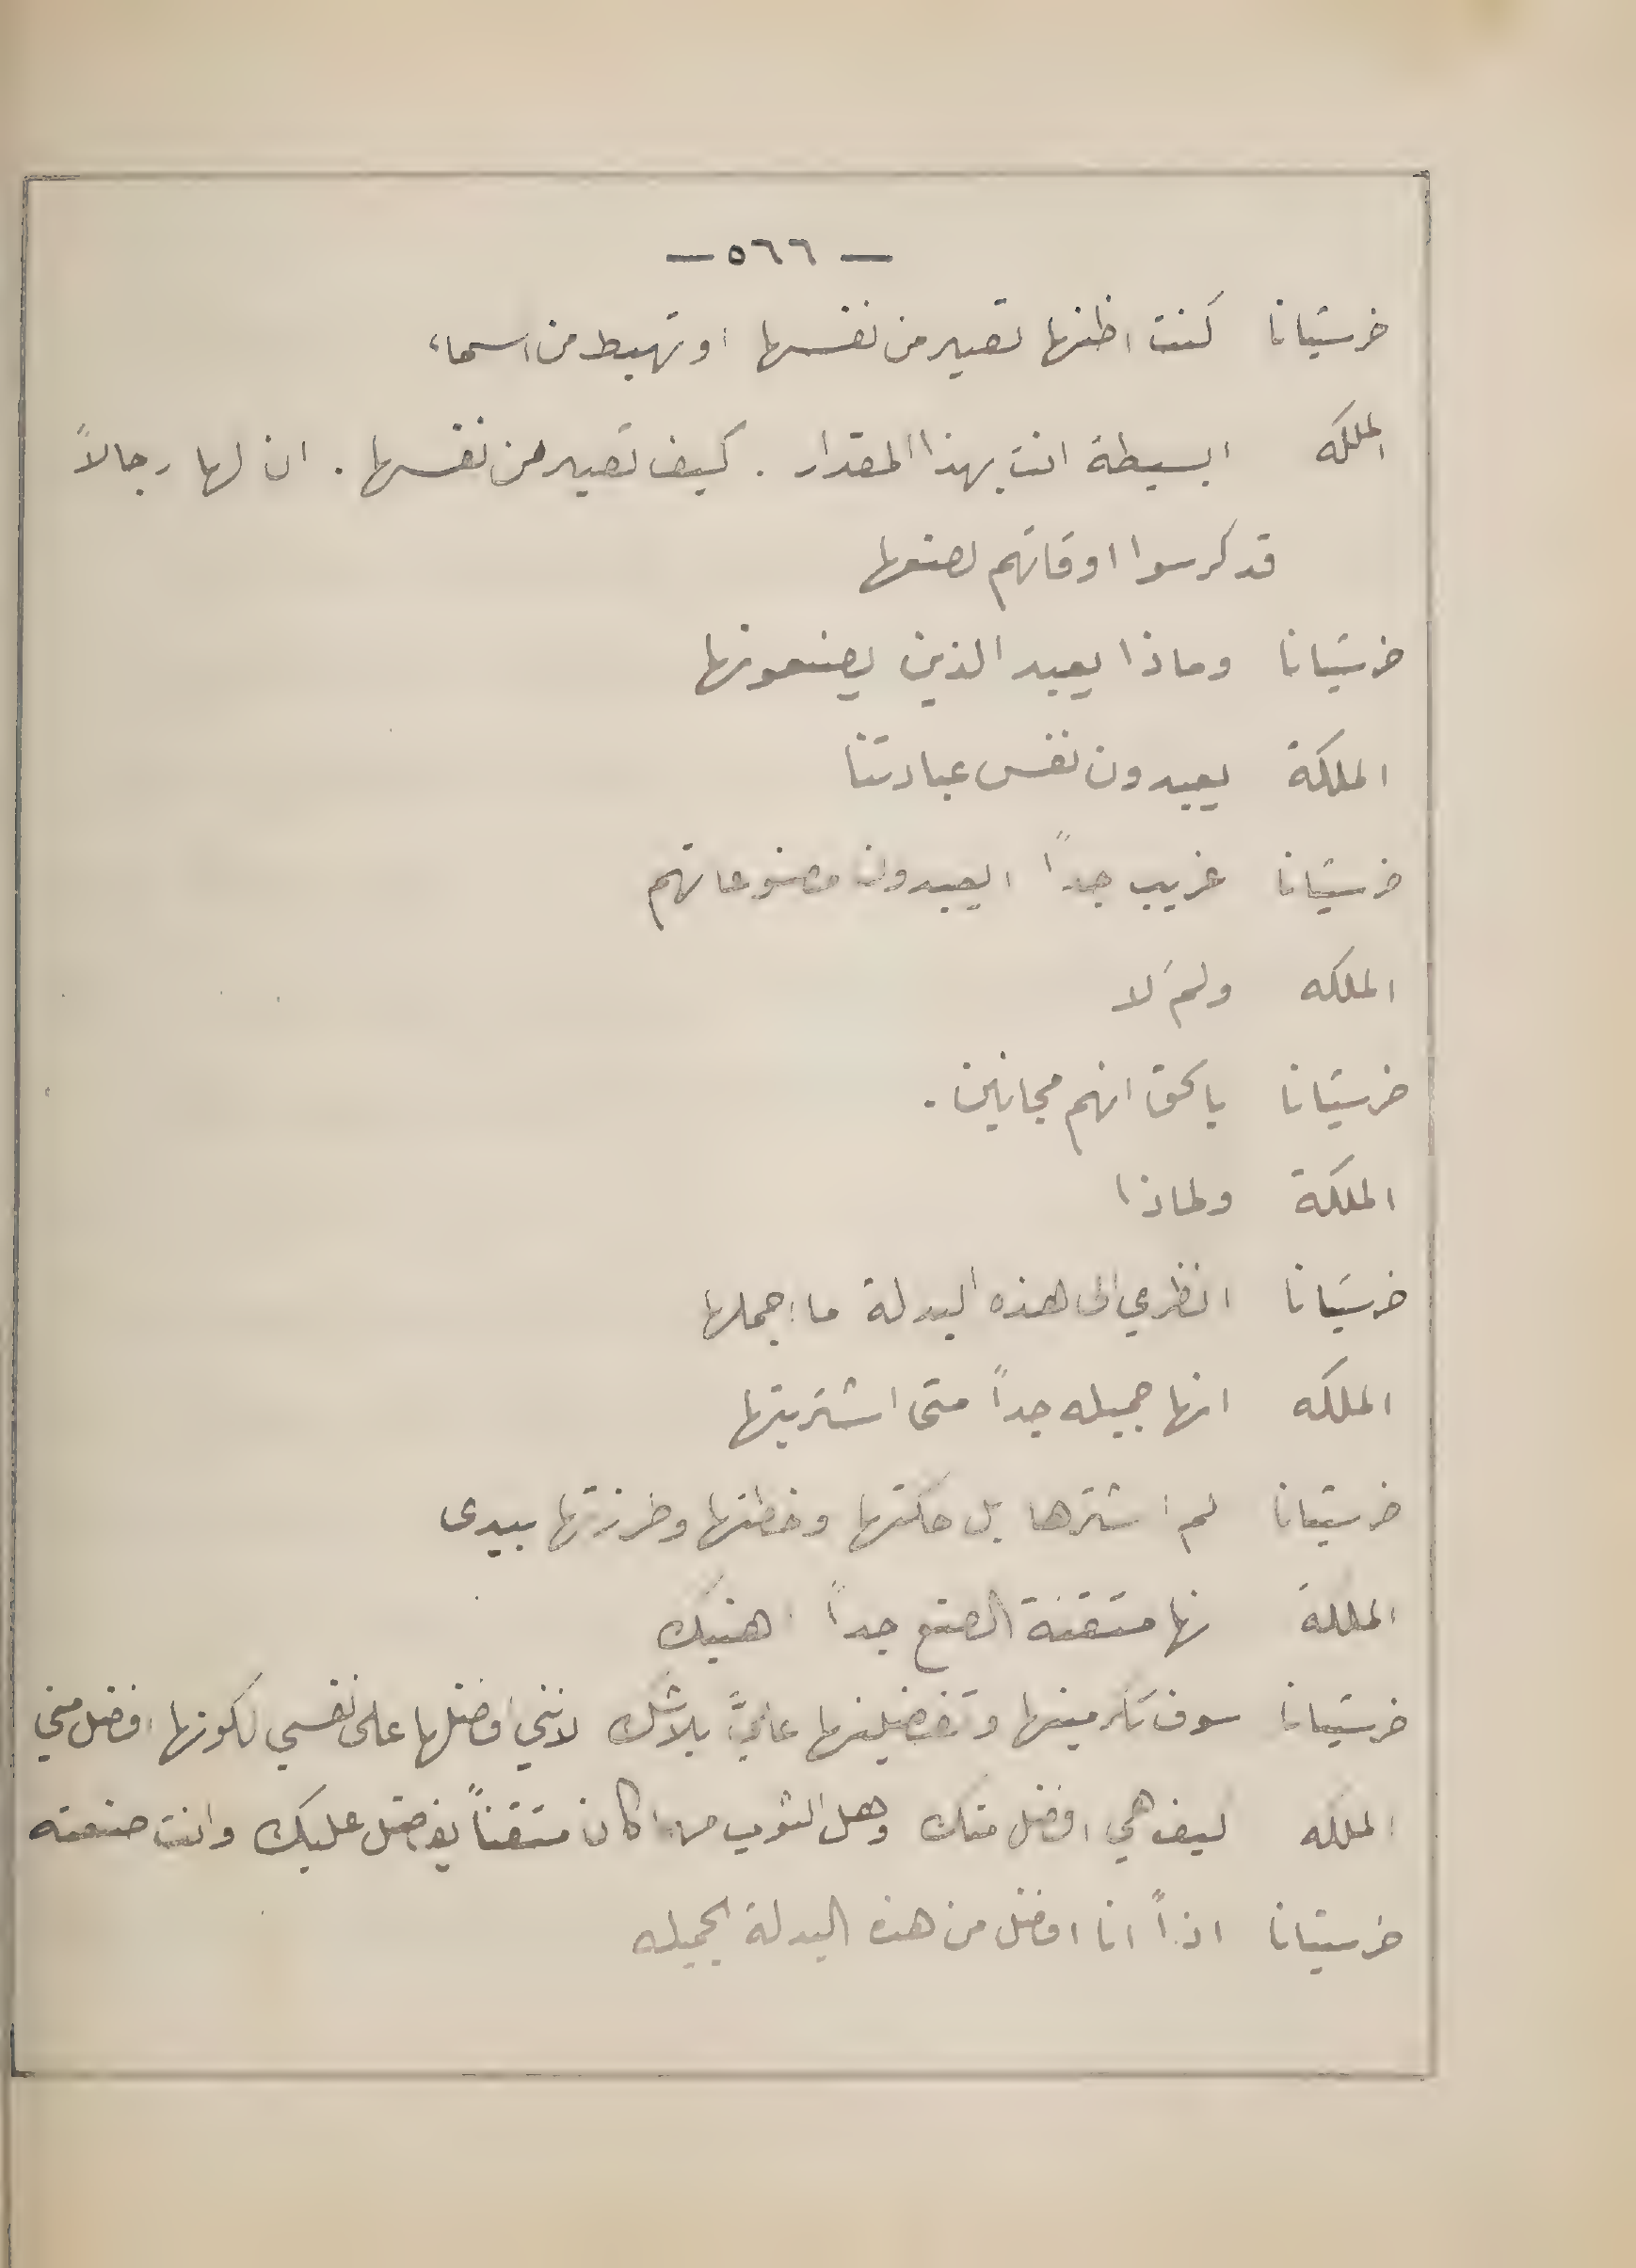 — ٥٦٦ —
خرستيانا كنت اظنها تصير من نفسها او تهبط من السماء
الملكه ابسيطة انت بهذا المقدار . كيف تصير من نفسها . ان لها رجالاً
قد كرسوا اوقاتهم لصنعها
خرستيانا وماذا يعبد الذين يصنعونها
الملكة يعبدون نفس عبادتنا
خرستيانا غريب جداً ايعبدون مصنوعاتهم
الملكه ولمَ لا
خرستيانا بالحق انهم مجانين .
الملكة ولماذا
خرستيانا انظري الى هذه البدلة ما اجملها
الملكه انها جميله جداً متى اشتريتها
خرستيانا لم اشترها بل حكتها وخطتها وطرزتها بيدى
الملكة نها متقنة الصنع جداً اهنيك
خرستيانا سوف تكرمينها وتفضلينها عليَّ بلا شك لانني افضلها على نفسي لكونها افضل مني
الملكه كيف هي افضل منك وهل الثوب مهما كان متقناً يفضل عليك وانت صنعته
خرستيانا اذاً انا افضل من هذه البدلة الجميله